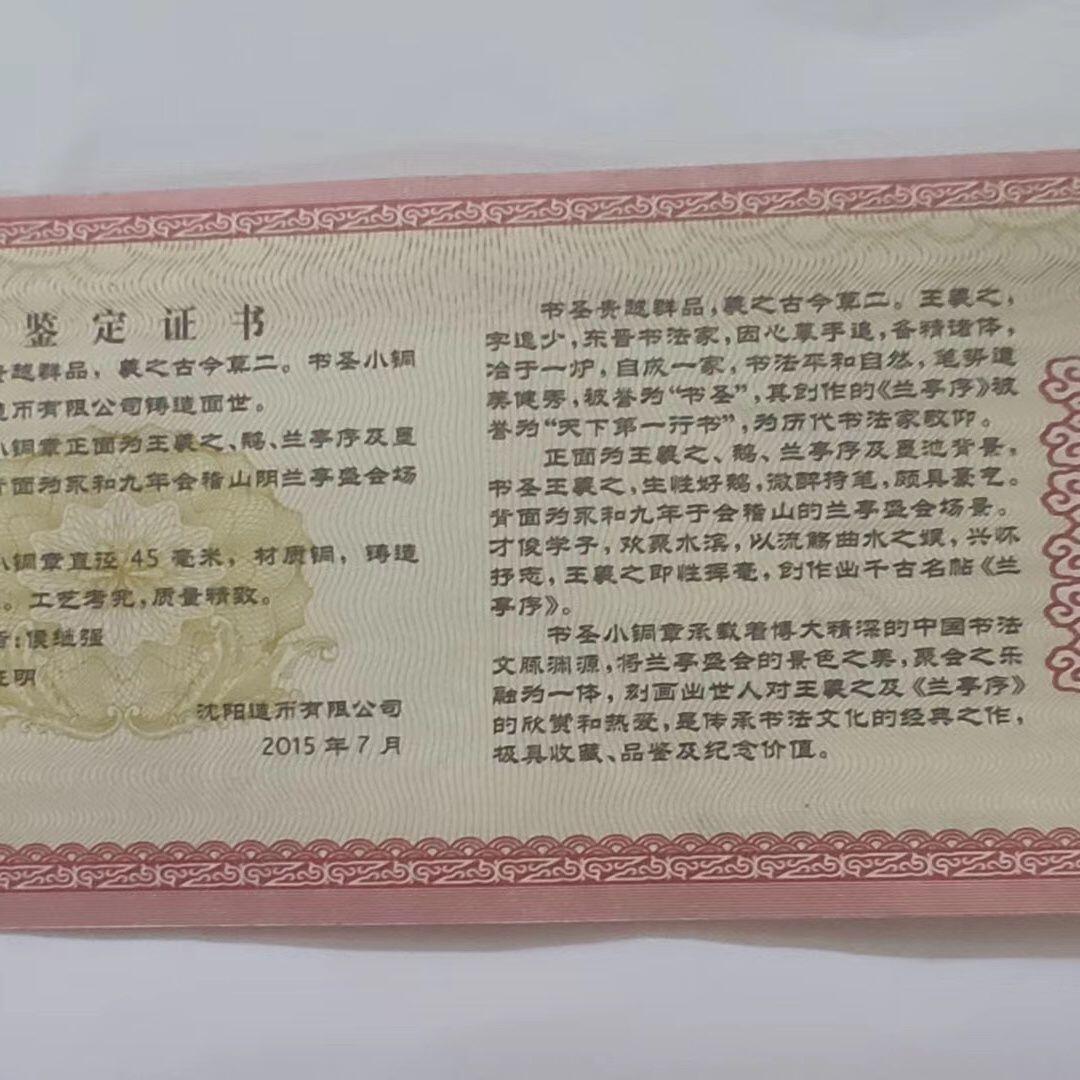 鉴定证书
越群品，羲之古今莫二。书圣小铜
币有限公司铸造面世。
小铜章正面为王羲之、鹅、兰亭序及墨
面为永和九年会稽山阴兰亭盛会场
小铜章直径 45 毫米，材质铜，铸造
。工艺考究，质量精致。
：侯继强
证明
沈阳造币有限公司
2015 年 7 月
书圣贵越群品，羲之古今莫二。王羲之，
字逸少，东晋书法家，因心摹手追，备精诸体，
冶于一炉，自成一家，书法平和自然，笔势遒
美健秀，被誉为“书圣”，其创作的《兰亭序》被
誉为“天下第一行书”，为历代书法家敬仰。
正面为王羲之、鹅、兰亭序及墨池背景，
书圣王羲之，生性好鹅，微醉持笔，颇具豪气。
背面为永和九年于会稽山的兰亭盛会场景。
才俊学子，欢聚水滨，以流觞曲水之娱，兴怀
抒志，王羲之即性挥毫，创作出千古名帖《兰
亭序》。
书圣小铜章承载着博大精深的中国书法
文脉渊源，将兰亭盛会的景色之美，聚会之乐
融为一体，刻画出世人对王羲之及《兰亭序》
的欣赏和热爱，是传承书法文化的经典之作，
极具收藏、品鉴及纪念价值。